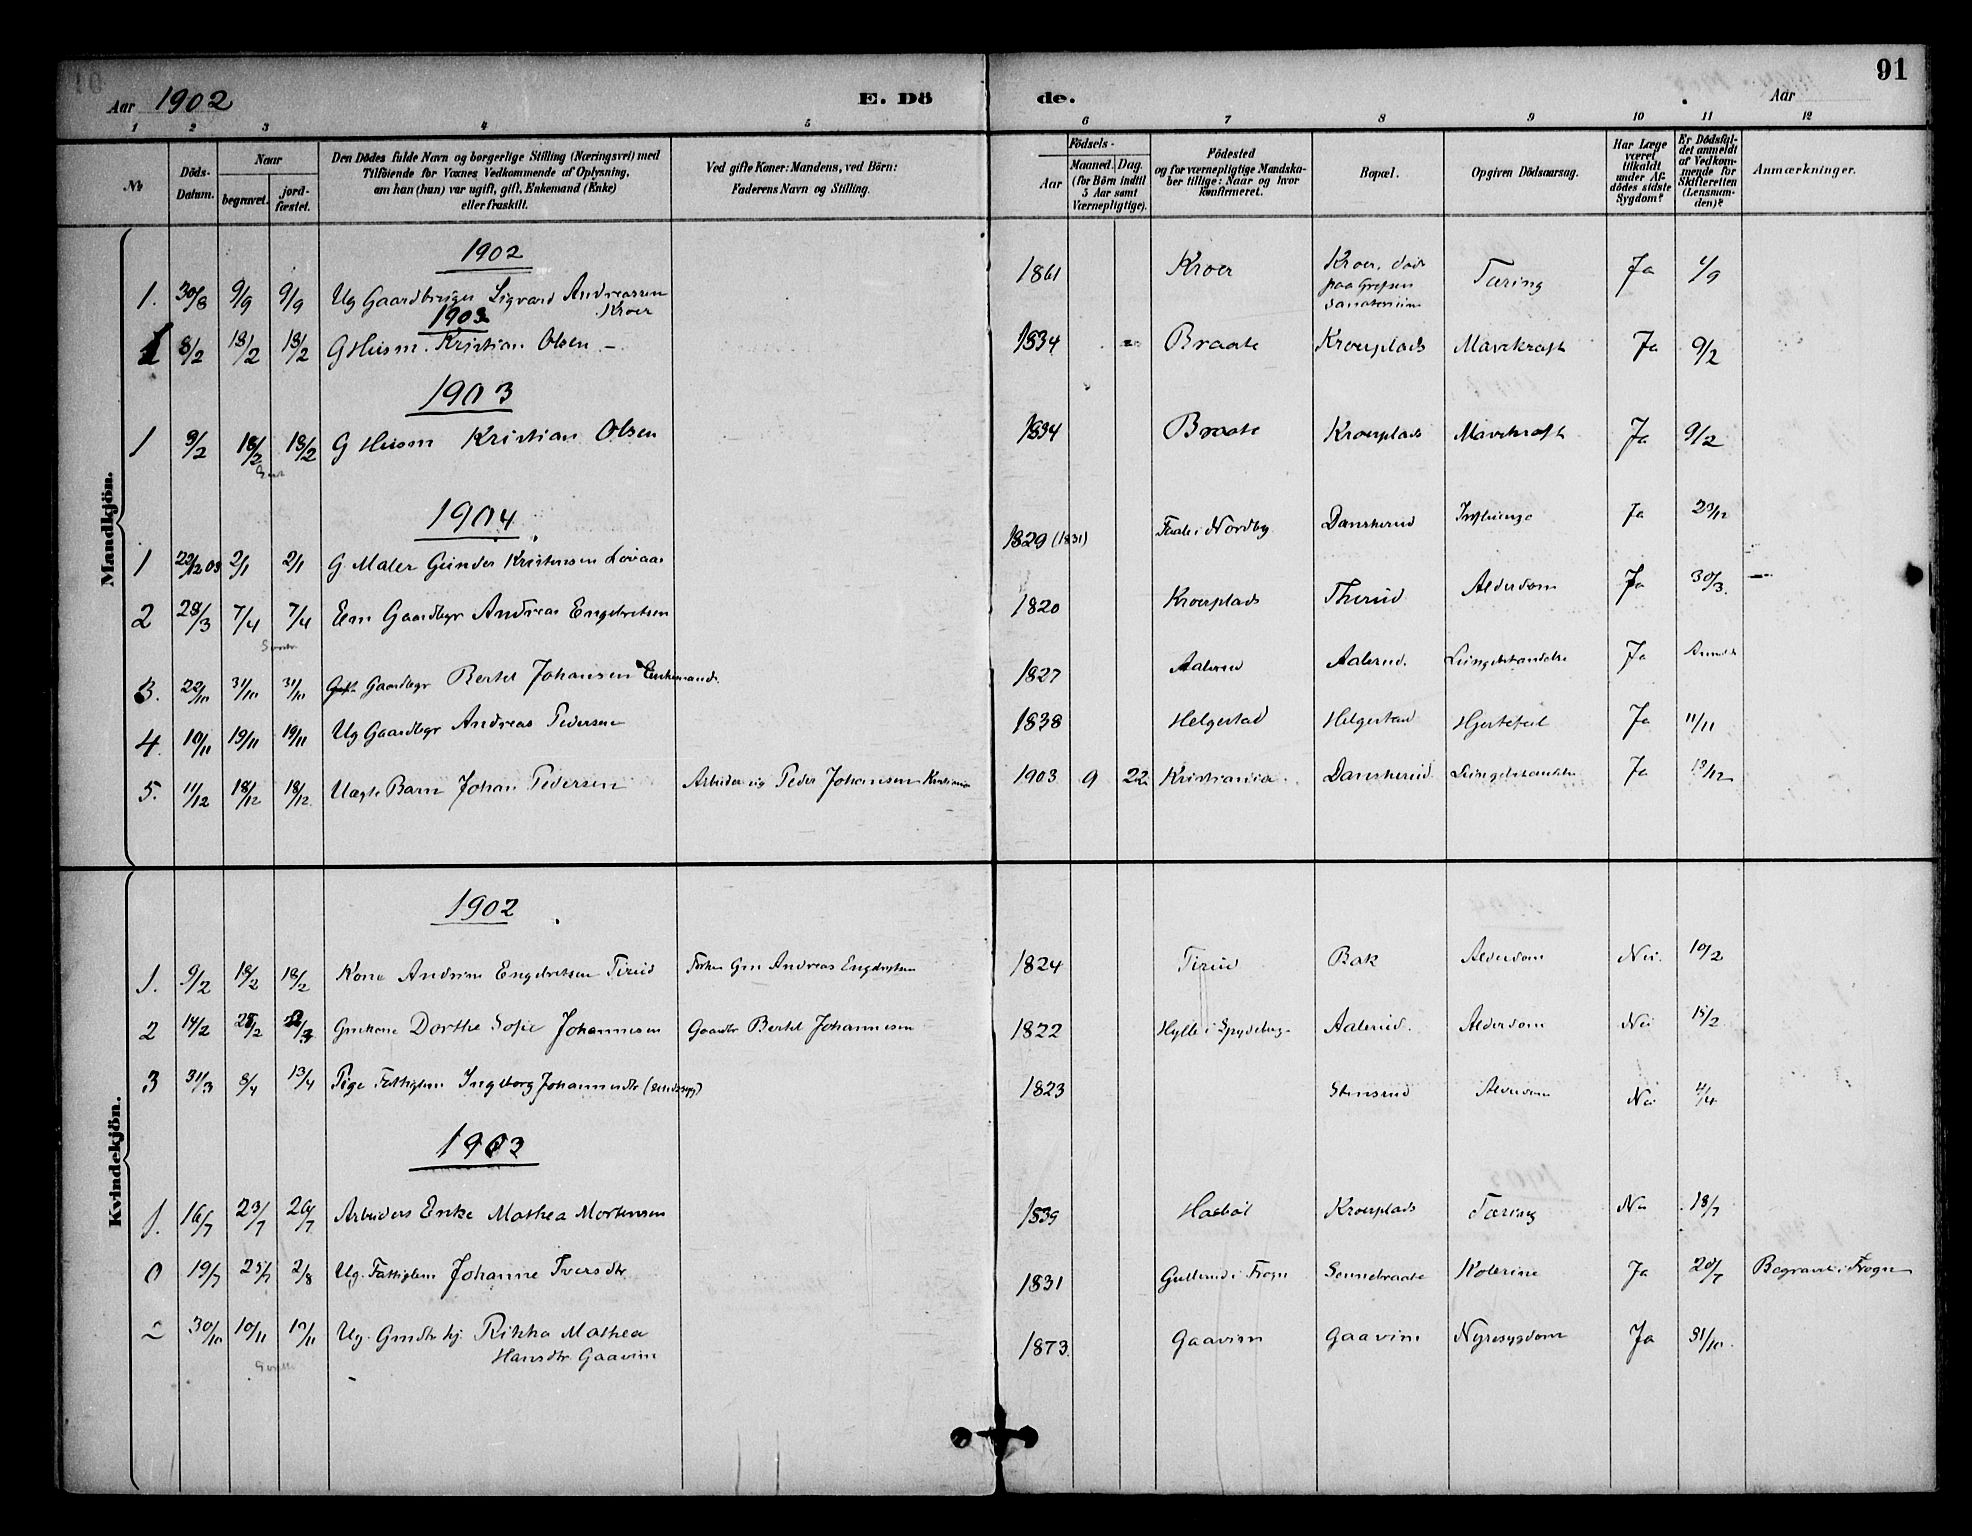 Aar 1902 E. Dö de. Aar 91
1 2 3 4 5 6 7 8 9 10 11 12
№
Döds-
Datum.
Naar
begravet.
jord-
fæstet.
Den Dödes fulde Navn og borgerlige Stilling (Næringsvei) med
Tilföiende for Voxnes Vedkommende af Oplysning,
om han (hun) var ugift, gift, Enkemand (Enke)
eller fraskilt.
Ved gifte Koner: Mandens, ved Börn:
Faderens Navn og Stilling.
Födsels-
Aar
Maaned. Dag.
(for Börn indtil
5 Aar samt
Værnepligtige).
Födested
og for værnepligtige Mandska-
ber tillige: Naar og hvor
konfirmeret.
Bopæl.
Opgiven Dödsaarsag.
Har Læge
været
tilkaldt
under Af-
dödes sidste
Sygdom?
Er Dödsfal-
det anmeldt
af Vedkom-
mende for
Skifteretten
(Lensman-
den)?
Anmærkninger.
Mandkjön.
1902
1. 30/8 9/9 9/9 Ug Gaardbruger Sigvard Andreassen Kroer 1861 Kroer Kroer, död paa Grefsen Sanatorium Tæring Ja 4/9
1903
1 8/2 18/2 18/2 G Husm. Kristian Olsen – 1834 Braate Kroerplads Mavekræft Ja 9/2
1903
1 8/2 18/2 18/2 G Husm Kristian Olsen 1834 Braate Kroerplads Mavekræft Ja 9/2
1904
1 22/12 03 2/1 2/1 G. Maler Gunder Kristensen Lovaas 1829 (1831) i Nordby Danskerud Influenza Ja 23/12
2 28/3 7/4 7/4 Em Gaardbgr Andreas Engebretsen 1820 Kroerplads Thirud Alderdom Ja 30/3 –
3. 22/10 31/10 31/10 Gaardbgr Bertel Johansen Enkemand. 1827 Aalerud Aalerud. Lungebetændelse Ja Anmeldt
4. 10/11 19/11 19/11 Ug Gaardbgr Andreas Pedersen 1838 Helgestad Helgestad Hjertefeil Ja 11/11
5. 11/12 18/12 18/12 Uægte Barn Johan Pedersen Arbeider ug Peder Johansen Kristiania 1903 9 22 Kristiania. Danskerud Lungebetændelse Ja 13/12
Kvindekjön.
1902
1. 9/2 18/2 18/2 Kone Andrine Engebretsen Tirud Forhen Gm Andreas Engebretsen 1824 Tirud Bak Alderdom Nei. 10/2
2 14/2 25/2 Gmkone Dorthe Sofie Johannesen Gaardbr Bertel Johannesen 1822 Hylle i Spydeberg Aalerud. Alderdom Nei 15/2
3 31/3 8/4 13/4 Pige Fattiglem Ingeborg Johannesdtr (sindssyg) 1823 Stensrud Alderdom Nei 4/4
1903
1. 16/7 23/7 26/7 Arbeiders Enke Mathea Mortensen 1839 Haaböl Kroerplads Tæring Nei 18/7
0 19/7 25/7 2/8 Ug. Fattiglem Johanne Iversdtr 1831 Gullerud i Frogn Sonnebraate Kolerine Ja 20/7 Begravet i Frogn
2 30/10 10/11 10/11 Ug. Gmdtr hj. Rikka Mathea
Hansdtr Gaavim 1873. Gaavim Gaavim Nyresygdom Ja 31/10